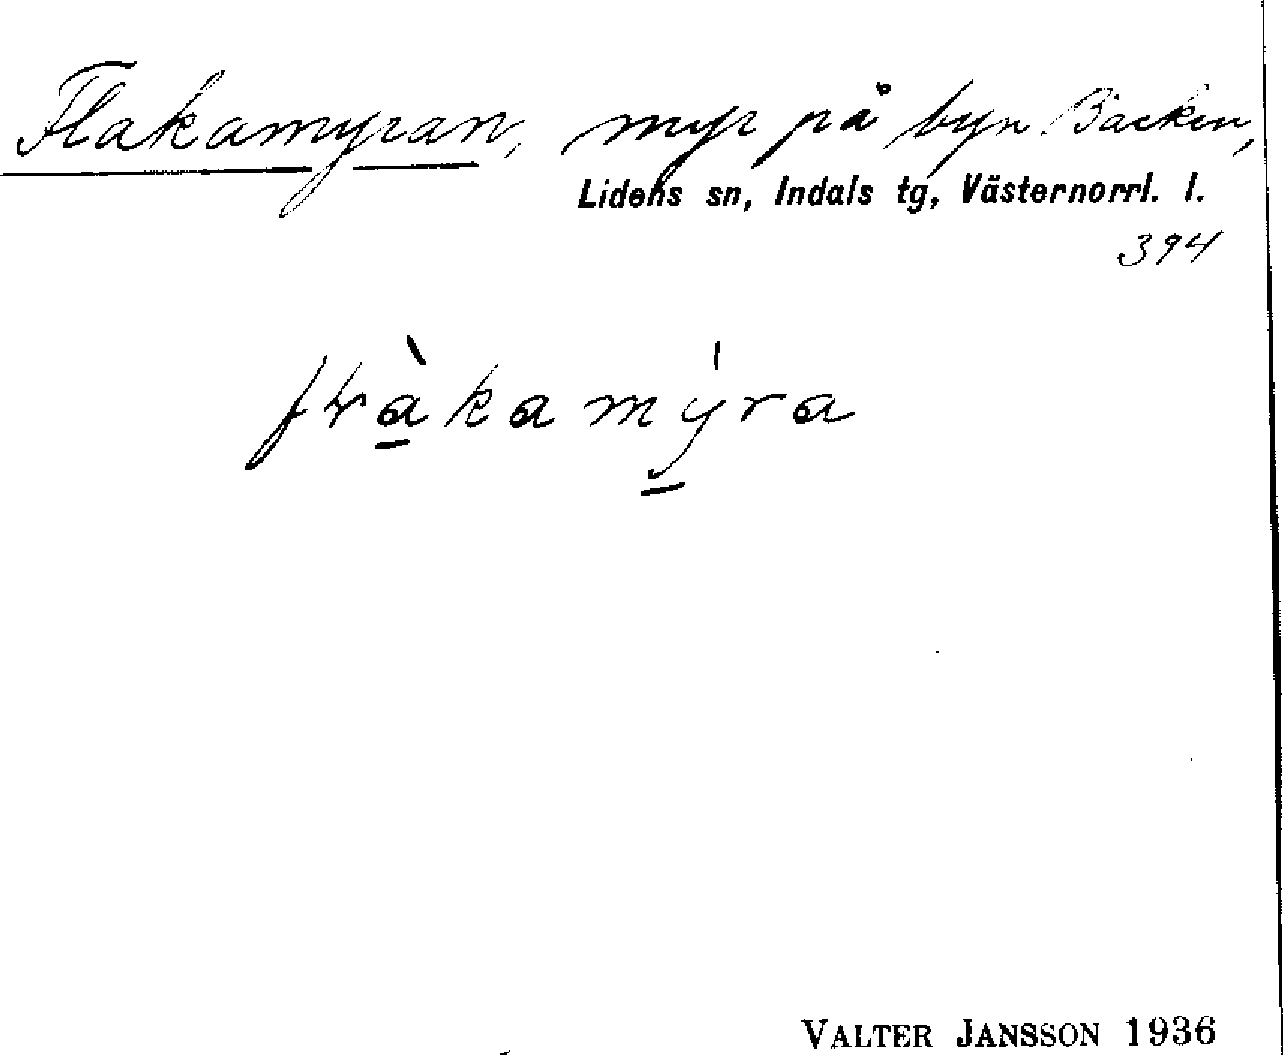 Flakamyran, myr på byn Backen,
Lidens sn, Indals tg, Västernorrl. l.
394
fɽàkamýra
VALTER JANSSON 1936